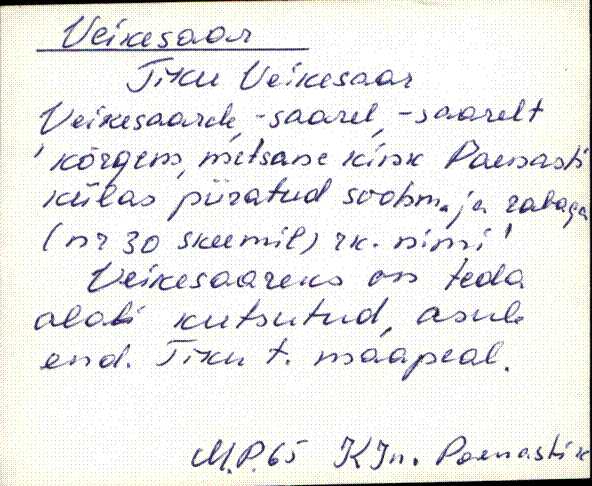 Veikesaar
Tiku Veikesaar
Veikesaarde, -saarel, -saarelt
'kõrgem, metsane kink Paenasti
külas piiratud soohm. ja rabaga
(nr 30 skeemil) rk. nimi'
Veikesaareks on teda
alati kutsutud, asub
end. Tiku t. maapeal.
M.P. 65 KJn. Paenasti k